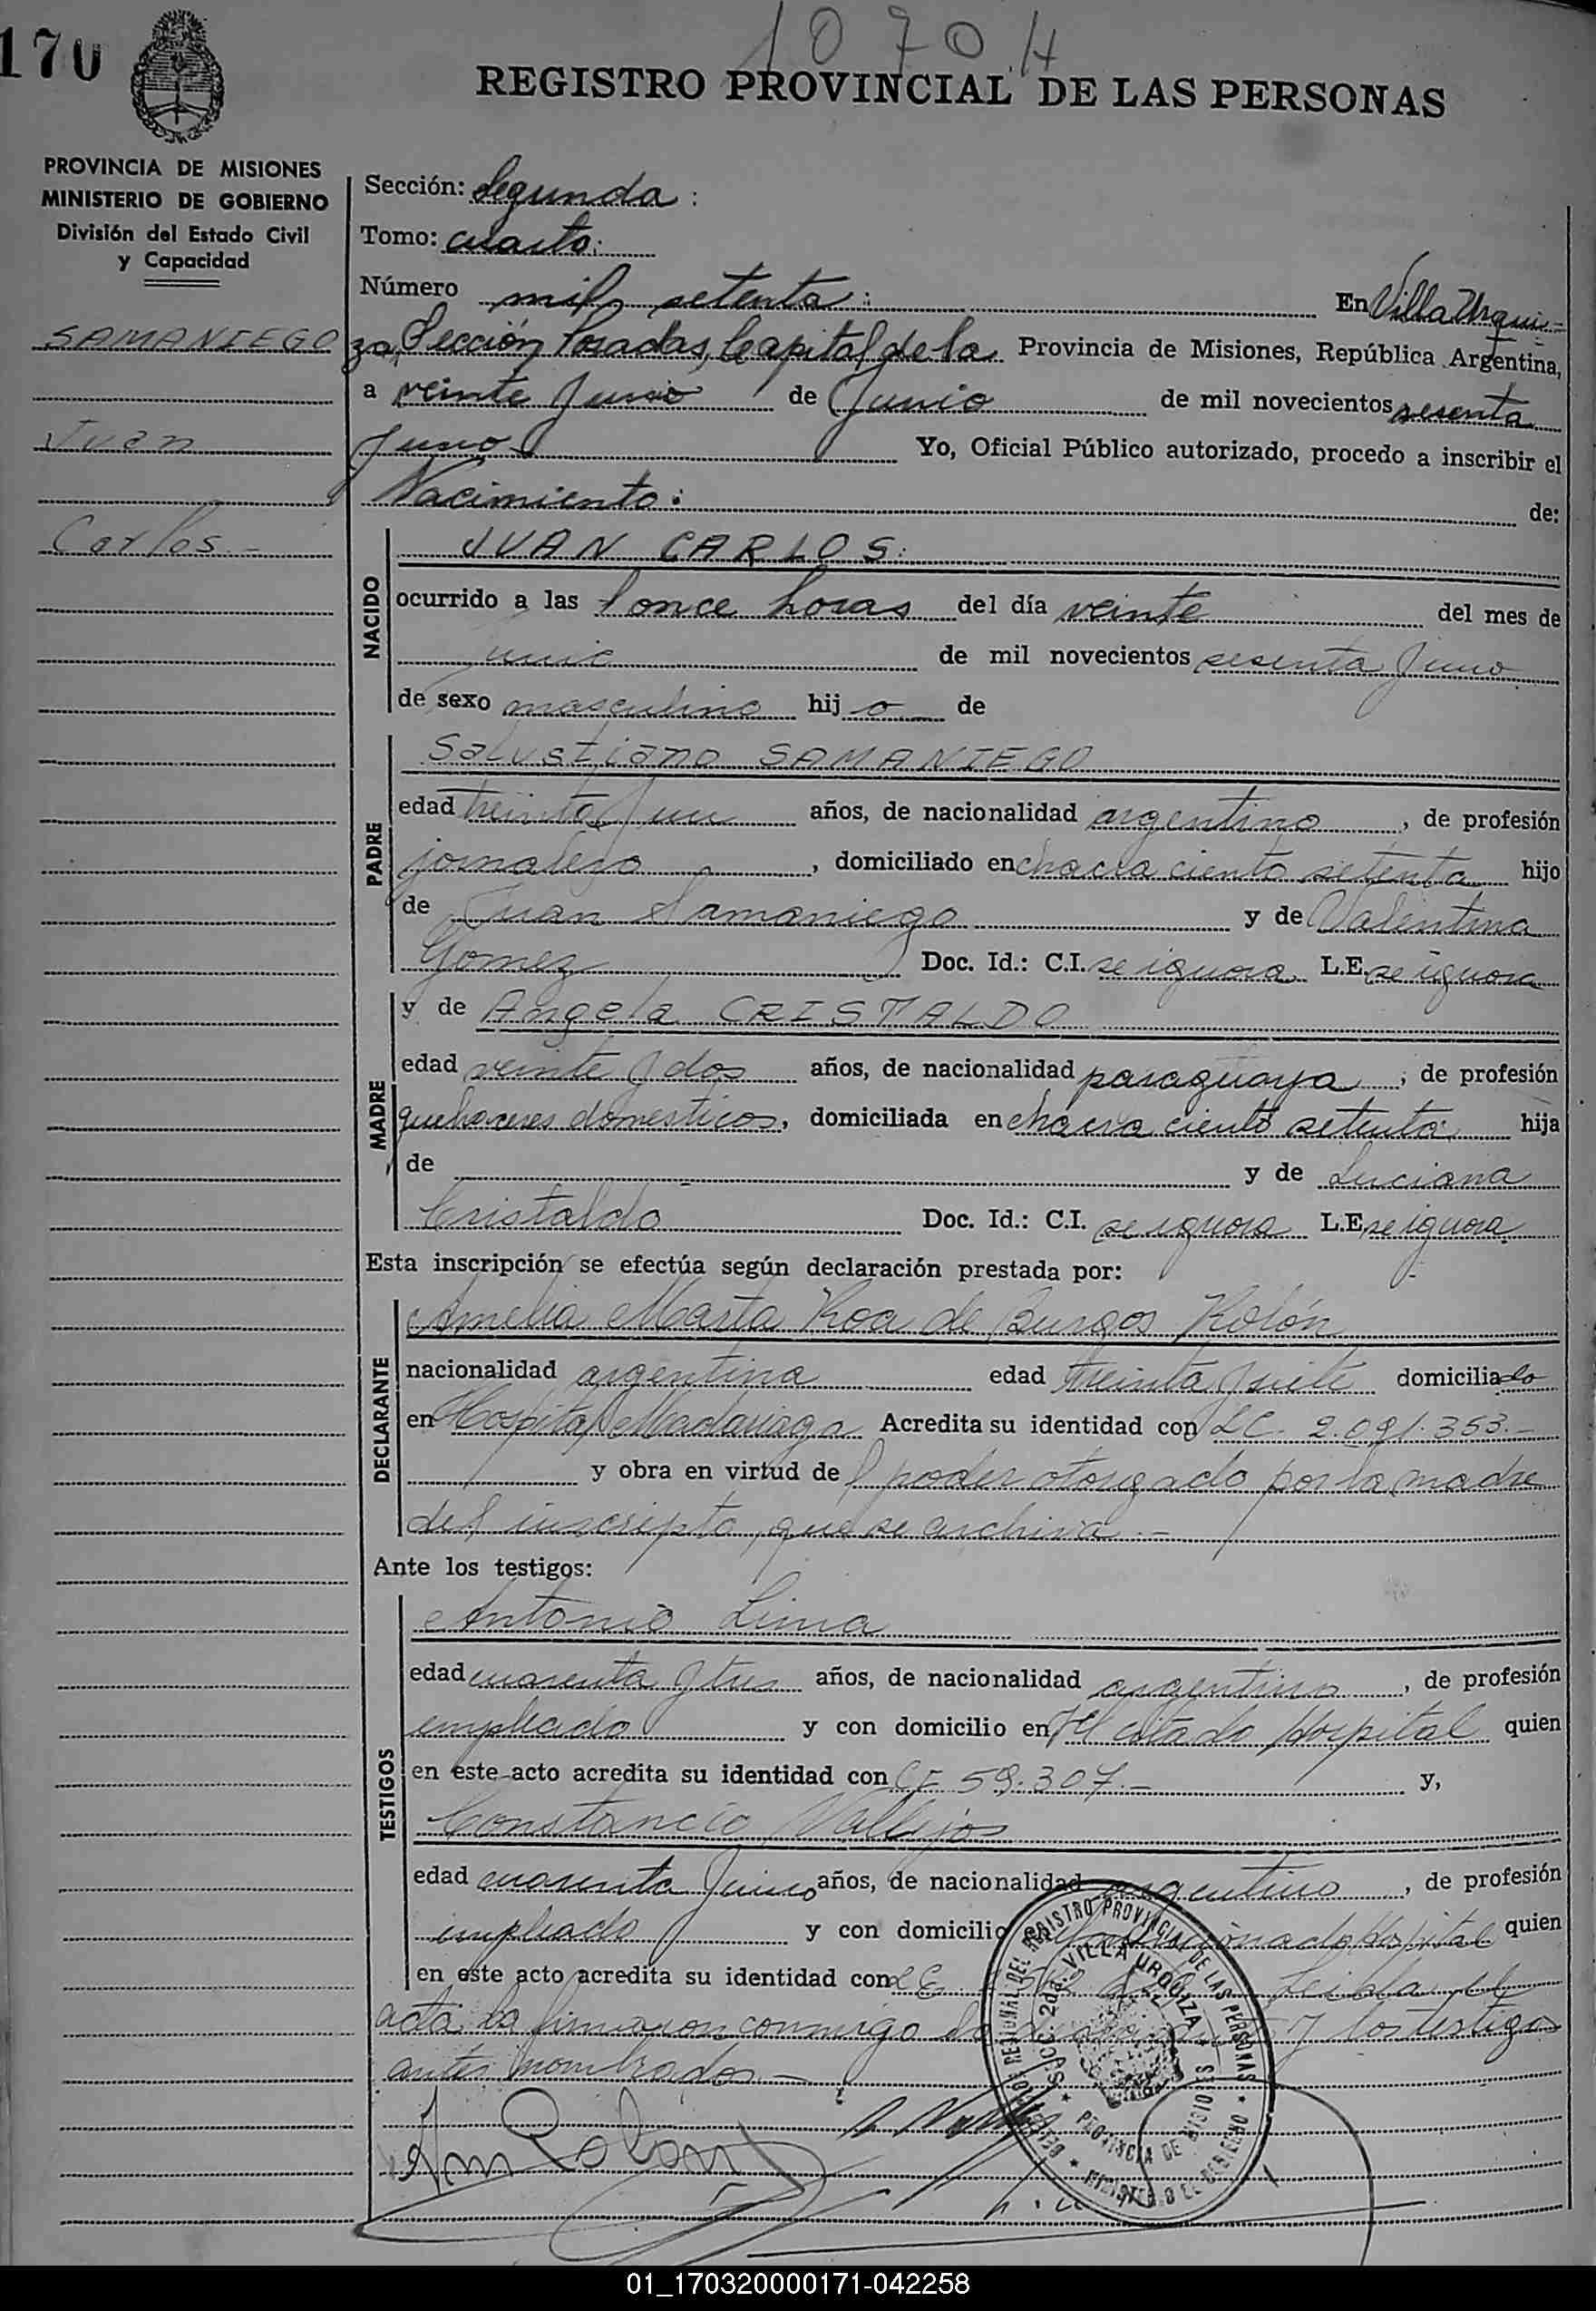 170
1070 H
REGISTRO PROVINCIAL DE LAS PERSONAS
PROVINCIA DE MISIONES
MINISTERIO DE GOBIERNO
División del Estado Civil
y Capacidad
SAMANIEGO
Juan
Carlos.-
Sección: Segunda:
Tomo: cuarto:
Número mil setenta: En Villa Urqui-
za, Sección Posadas, Capital de la Provincia de Misiones, República Argentina,
a veinte y uno de Junio de mil novecientos sesenta
y uno Yo, Oficial Público autorizado, procedo a inscribir el
Nacimiento: de:
NACIDO
JUAN CARLOS:
ocurrido a las once horas del día veinte del mes de
junio de mil novecientos sesenta y uno
de sexo masculino hij o de
PADRE
Salustiano SAMANIEGO
edad treinta y un años, de nacionalidad argentino, de profesión
jornalero, domiciliado en chacra ciento setenta hijo
de Juan Samaniego y de Valentina
Gomez Doc. Id.: C.I. se ignora L.E. se ignora
MADRE
y de Angela CRISTALDO
edad veinte y dos años, de nacionalidad paraguaya, de profesión
quehaceres domesticos, domiciliada en chacra ciento setenta hija
de - y de Luciana
Cristaldo Doc. Id.: C.I. se ignora L.E. se ignora
Esta inscripción se efectúa según declaración prestada por:
DECLARANTE
Amelia Marta Roa de Burgos Rolón
nacionalidad argentina edad treinta y siete domicilia da
en Hospital Madariaga Acredita su identidad con LC. 2.091.353.-
y obra en virtud de poder otorgado por la madre
del inscripto, que se archiva.-
Ante los testigos:
TESTIGOS
Antonio Lima
edad cuarenta y tres años, de nacionalidad argentino, de profesión
empleado y con domicilio en el citado Hospital quien
en este acto acredita su identidad con 59.307.- y,
Constancio Vallejos
edad cuarenta y años, de nacionalidad argentino, de profesión
empleado y con domicilio Hospital quien
en este acto acredita su identidad con LE Leida el
acta la firmaron conmigo y los testigos
antes nombrados.-
DEL REGISTRO PROVINCIAL DE LAS PERSONAS
SECC. 2da. VILLA URQUIZA
PROVINCIA DE MISIONES
01_170320000171-042258